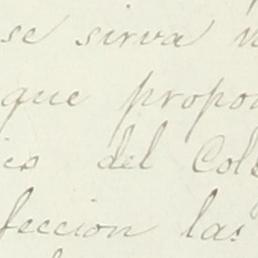 se sirva
que propo
del Col
feccion las